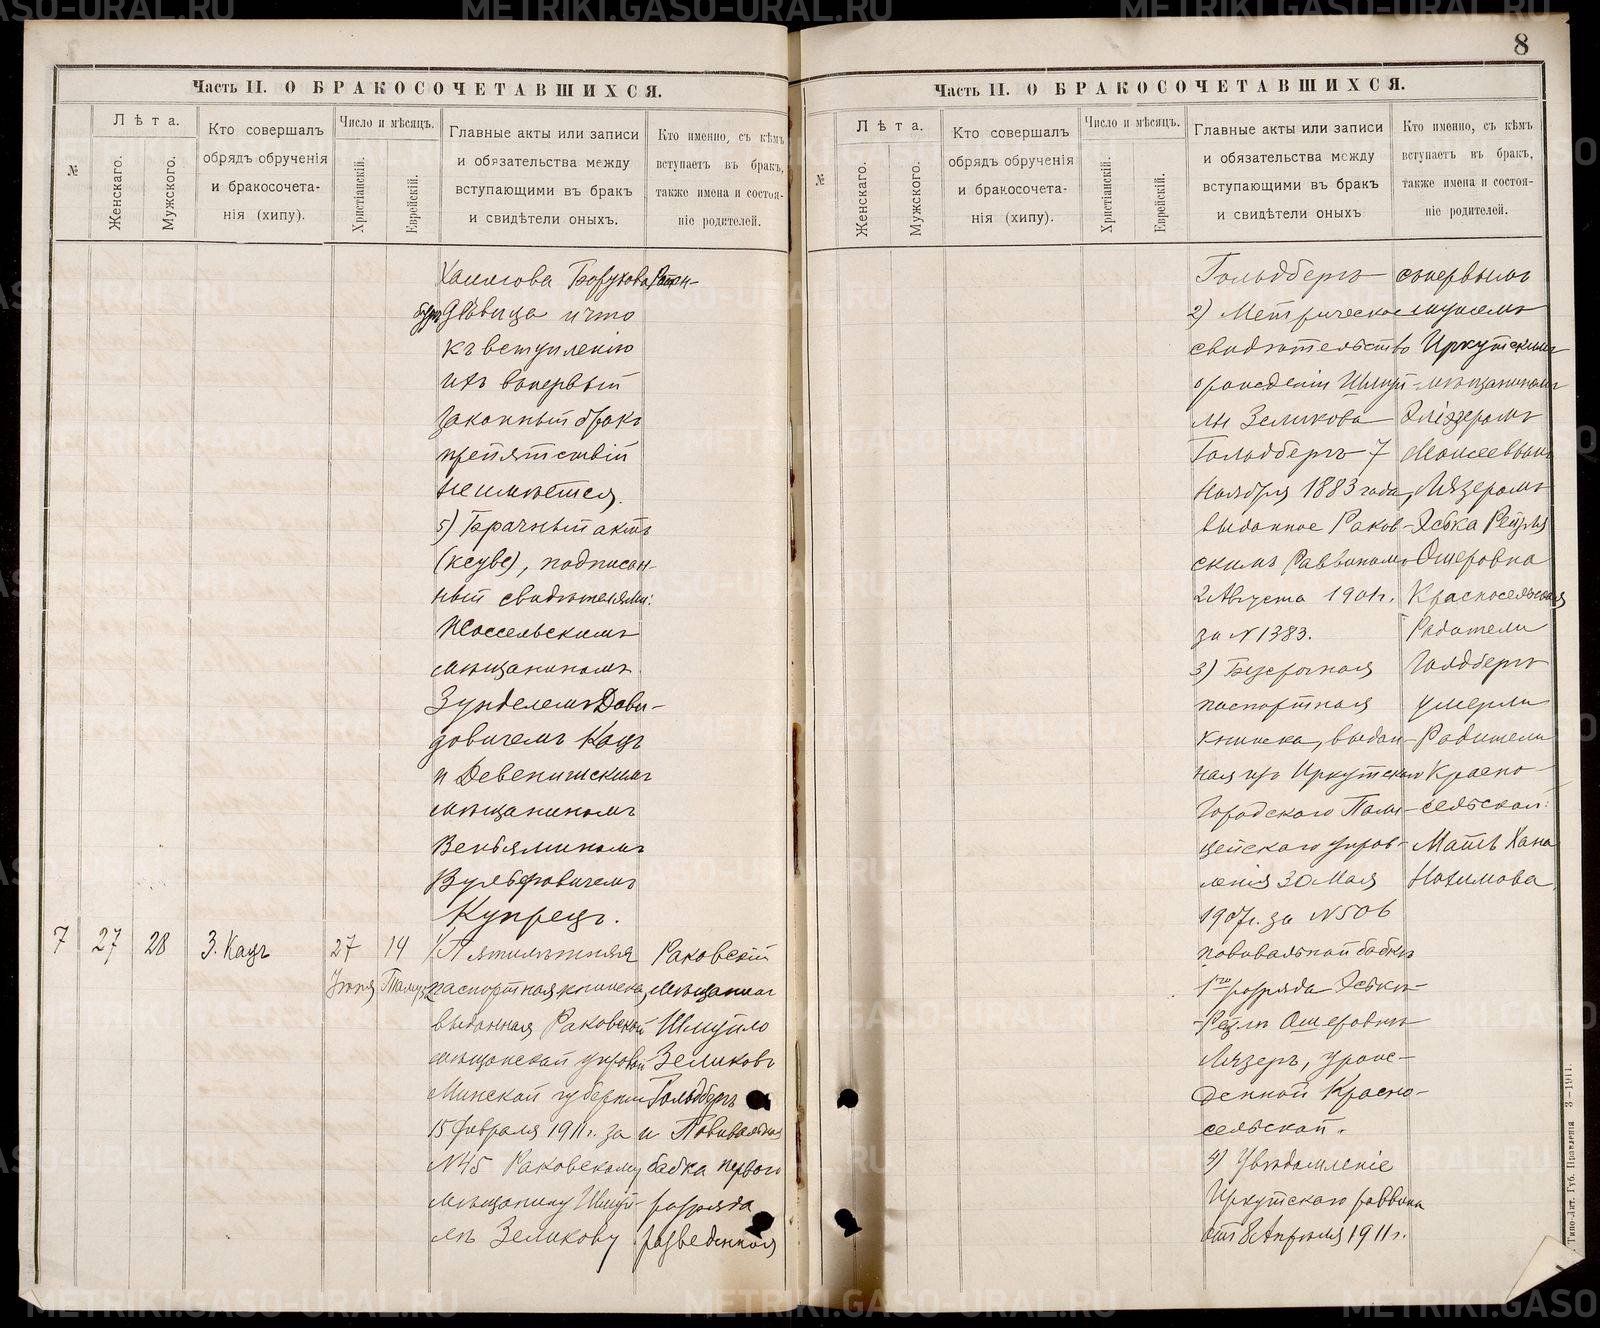 8
Часть II. О БРАКОСОЧЕТАВШИХСЯ.
№
Лѣта.
Женскаго.
Мужского.
Кто совершалъ
обрядъ обрученія
и бракосочета-
нія (хипу).
Число и мѣсяцъ.
Христіанскій.
Еврейскій.
Главные акты или записи
и обязательства между
вступающими въ бракъ
и свидѣтели оныхъ.
Кто именно, съ кѣмъ
вступаетъ въ бракъ,
также имена и состоя-
ніе родителей.
Борухова
дѣвица и что
къ вступленію
ихъ въ первый
законный бракъ
препятствій
не имѣется.
5) Брачный актъ
(ксуве), подписан-
ный свидѣтелями:
мѣщаниномъ
Зунделемъ Дави-
довичемъ Кацъ
и Девенишскимъ
мѣщаниномъ
Веньяминомъ
Вульфовичемъ
Купрецъ.
7 27 28 З. Кацъ 27 14
Іюня Тамуз
1) Пятилѣтняя
паспортная книжка,
выданная Раковской
мѣщанской управой
Минской губерніи
15 февраля 1911г. за
№45 Раковскому
мѣщанину Шмуй-
лѣ Зеликову
Раковскій
мѣщанинъ
Шмуйло
Зеликовъ
Гольдбергъ
и Повивальная
бабка перваго
разряда
разведенная
Часть II. О БРАКОСОЧЕТАВШИХСЯ.
№
Лѣта.
Женскаго.
Мужского.
Кто совершалъ
обрядъ обрученія
и бракосочета-
нія (хипу).
Число и мѣсяцъ.
Христіанскій.
Еврейскій.
Главные акты или записи
и обязательства между
вступающими въ бракъ
и свидѣтели оныхъ
Кто именно, съ кѣмъ
вступаетъ въ бракъ,
также имена и состоя-
ніе родителей.
Гольдбергъ
2) Метрическое
свидѣтельство
о рожденіи Шмуй-
лы Зеликова
Гольдбергъ 7
Ноября 1883 года,
выданное Раков-
скимъ Раввиномъ
2 Августа 1901г.
за №1383.
3) Безсрочная
паспортная
книжка, выдан-
ная изъ Иркутскаго
Городского Поли-
цейскаго управ-
ленія 30 Мая
1907г. за №506
повивальной бабкѣ
1го разряда Эськѣ-
Рейзлѣ Ошеровнѣ
Лязеръ, урож-
денной Красно-
сельской.
4) Увѣдомленіе
Иркутскаго раввина
отъ 8 Апрѣля 1911г.
съ первымъ
мужемъ
Иркутскимъ
мѣщаниномъ
Эліазеромъ
Моисеевымъ
Лязеромъ
Эська Рейзля
Ошеровна
Красносельская
Родители
Гольдбергъ
умерли
Родители
Красно-
сельской:
Мать Хана
Нохимова
Типо-Лит. Губ. Правленія 3—1911.
METRIKI.GASO-URAL.RU